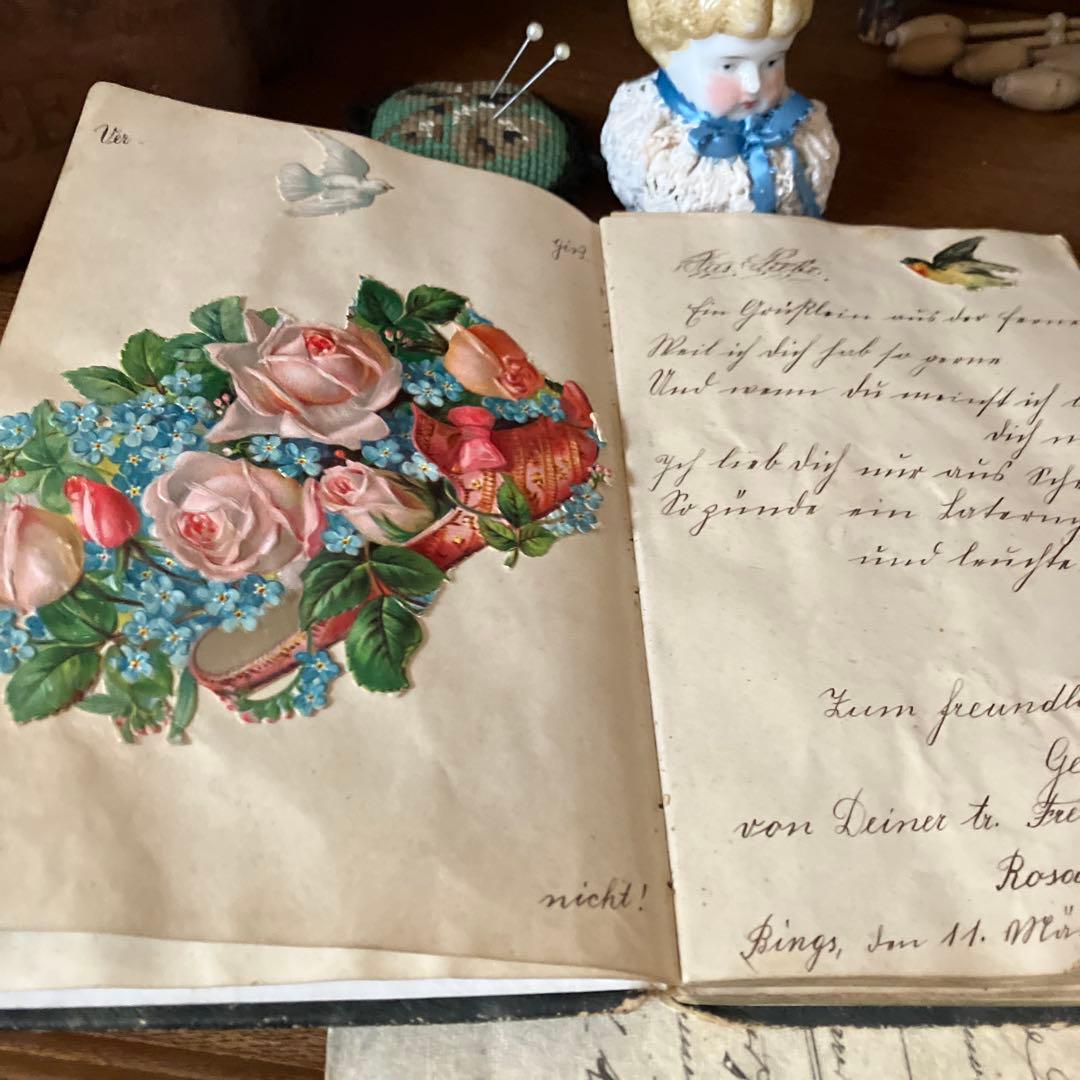 Ver
giß
nicht!
Aus Liebe.
Ein Grüßlein aus der Ferne
Weil ich dich hab so gerne
Und wenn du meinst ich
dich
Ich lieb dich nur aus
So zünde ein
und leuchte
Zum freundl
Ge
von Deiner tr. Fre
Rosa
Bings, den 11. Mä